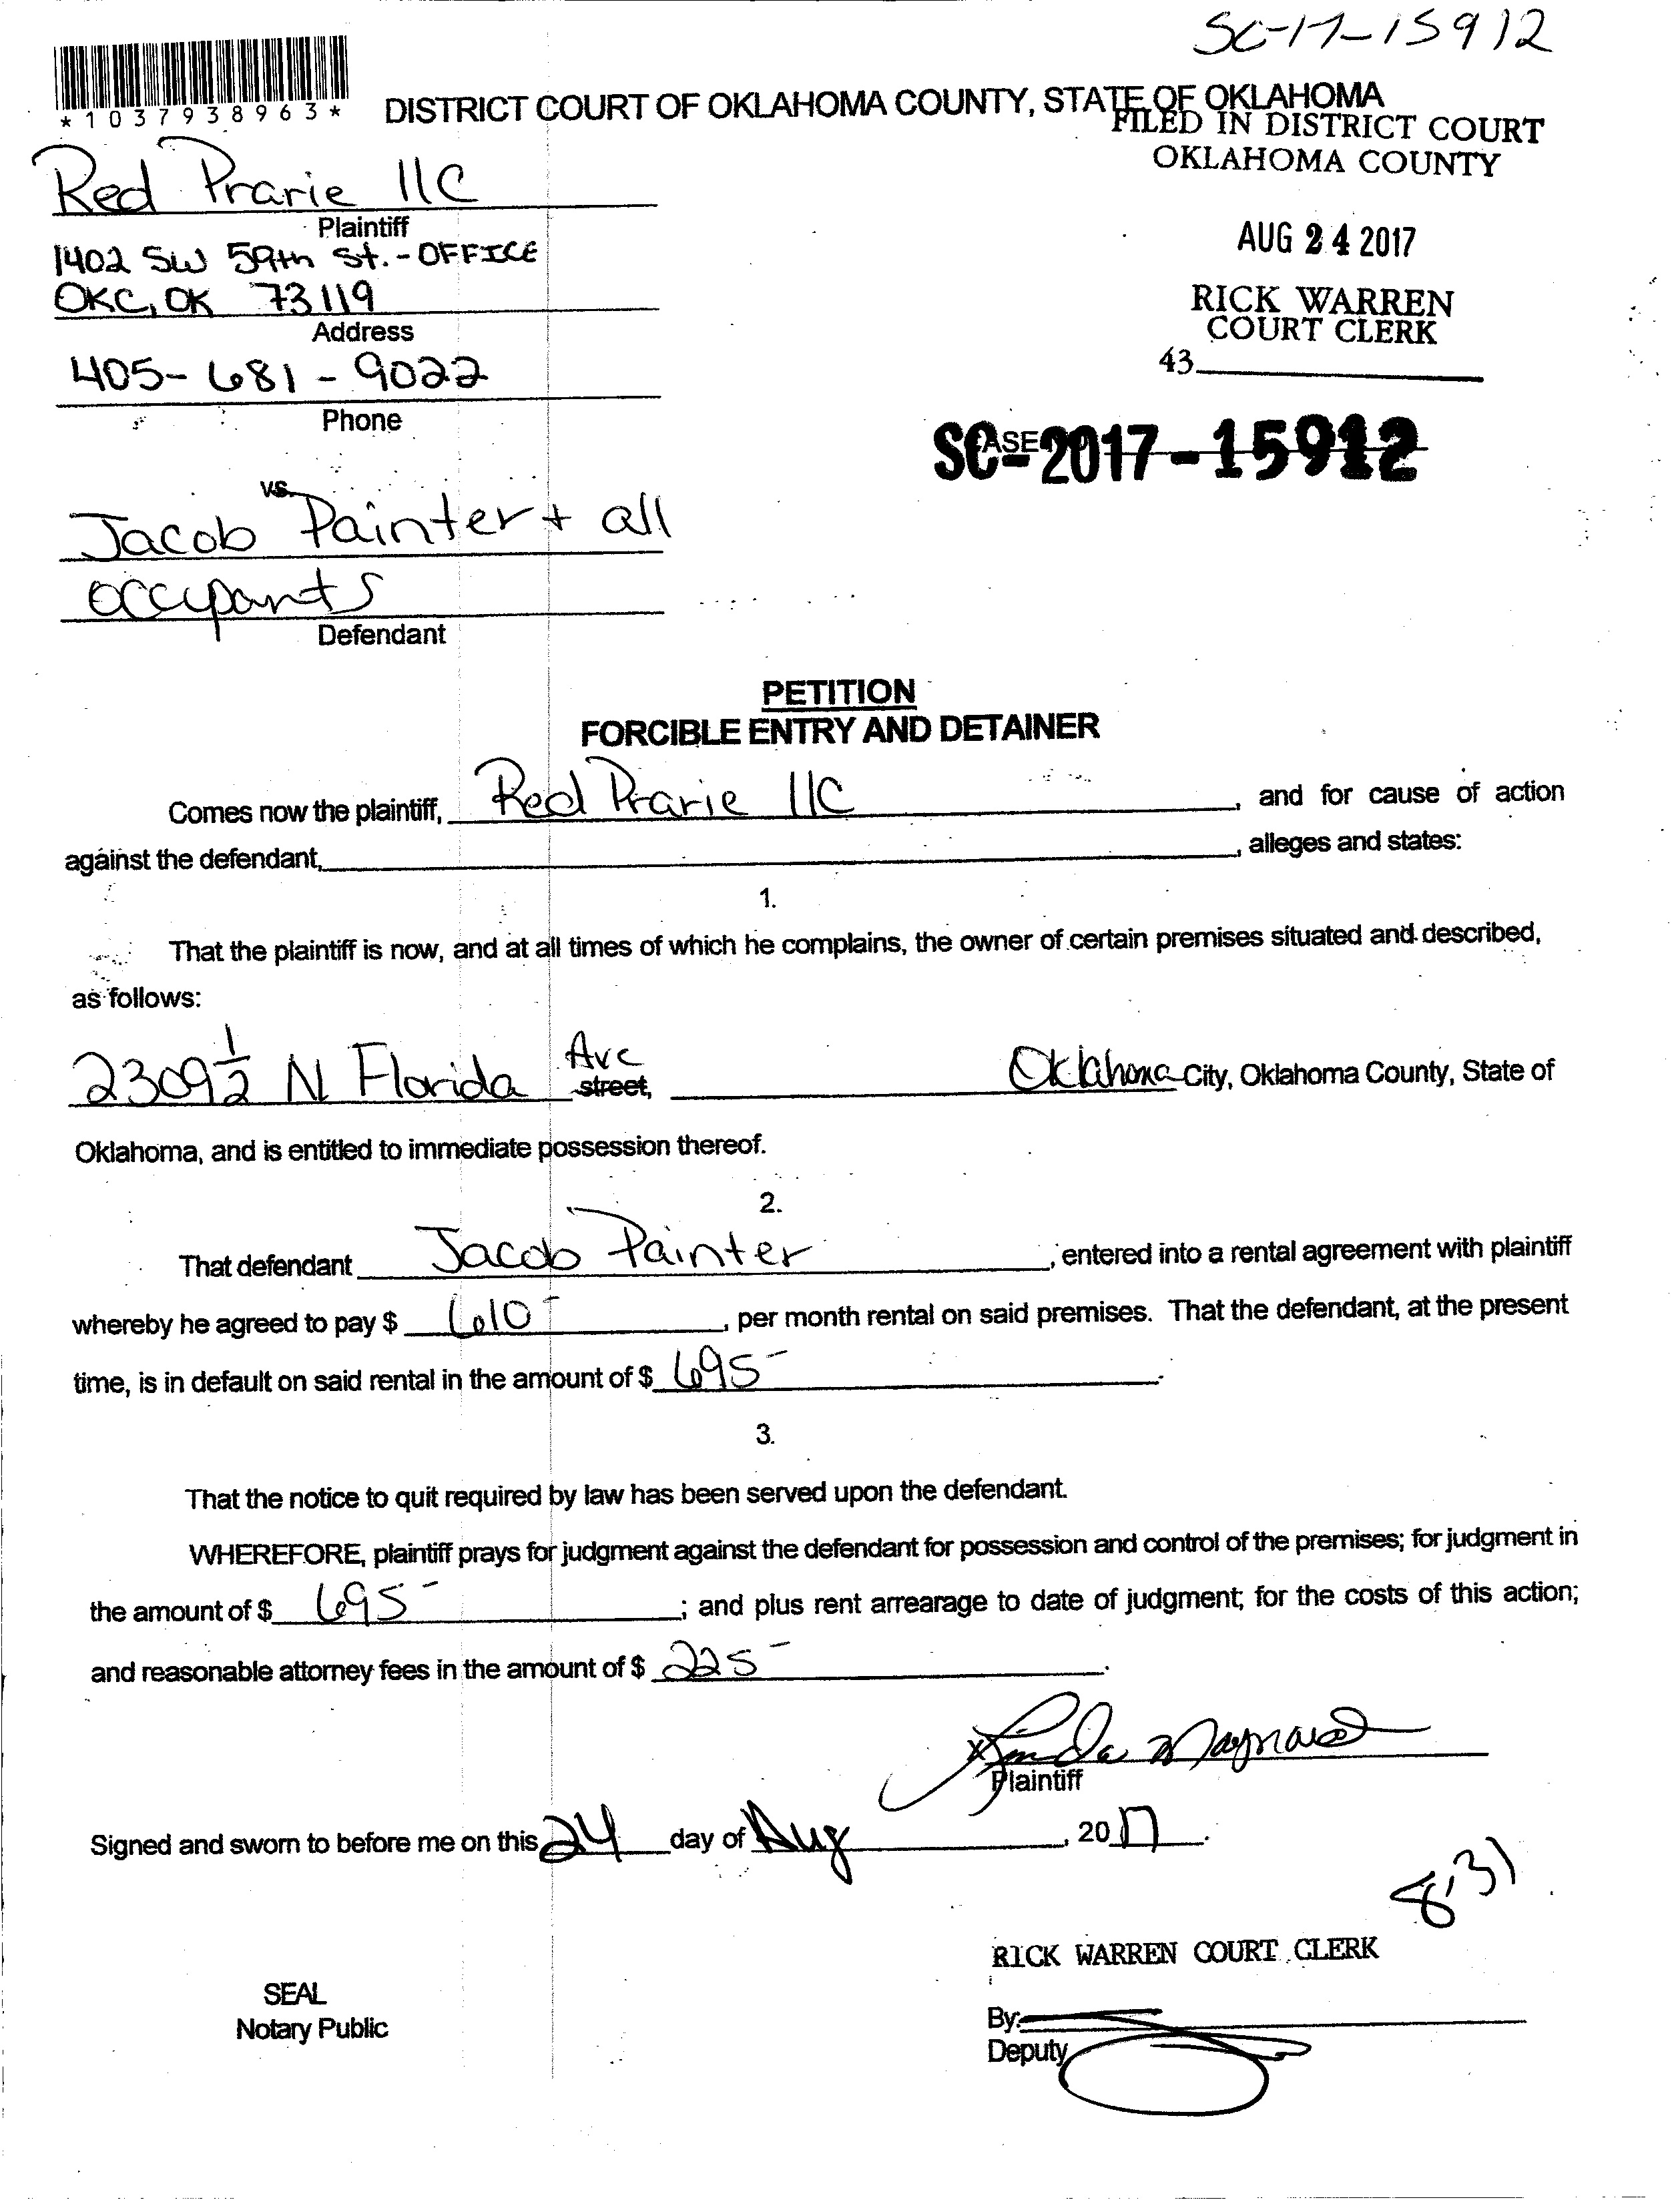 SC-17-15912
*1037938963*
DISTRICT COURT OF OKLAHOMA COUNTY, STATE OF OKLAHOMA
FILED IN DISTRICT COURT
OKLAHOMA COUNTY
Red Prarie llC
Plaintiff
1402 SW 59th St. - OFFICE
OKC, OK 73119
Address
405-681-9022
Phone
AUG 24 2017
RICK WARREN
COURT CLERK
43
CASE
SC-2017-15912
vs.
Jacob Painter + all
occupants
Defendant
PETITION
FORCIBLE ENTRY AND DETAINER
Comes now the plaintiff, Red Prarie llC, and for cause of action
against the defendant, , alleges and states:
1.
That the plaintiff is now, and at all times of which he complains, the owner of certain premises situated and described,
as follows:
2309 1/2 N Florida Ave street, Oklahoma City, Oklahoma County, State of
Oklahoma, and is entitled to immediate possession thereof.
2.
That defendant Jacob Painter, entered into a rental agreement with plaintiff
whereby he agreed to pay $ 610-, per month rental on said premises. That the defendant, at the present
time, is in default on said rental in the amount of $ 695-.
3.
That the notice to quit required by law has been served upon the defendant.
WHEREFORE, plaintiff prays for judgment against the defendant for possession and control of the premises; for judgment in
the amount of $ 695-; and plus rent arrearage to date of judgment; for the costs of this action;
and reasonable attorney fees in the amount of $ 225-.
x Linda Maynard
Plaintiff
Signed and sworn to before me on this 24 day of Aug, 2017.
8:31
RICK WARREN COURT CLERK
SEAL
Notary Public
By:
Deputy